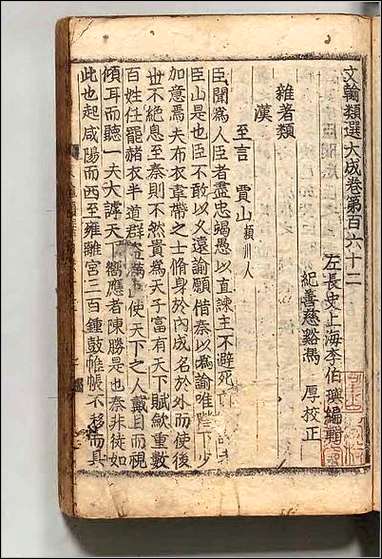 文翰類選大成卷第百六十二
左長史上海李伯璵編輯
紀善慈谿馮 厚校正
雜著類
漢
至言 賈山潁川人
臣聞爲人臣者盡忠竭愚以直諫主不避死
臣山是也臣不敢以久遠諭願借秦以爲諭唯陛下少
加意焉夫布衣韋帶之士脩身於內成名於外而使後
世不絶息至秦則不然貴爲天子富有天下賦歛重數
百姓任罷赭衣半道群盜滿山使天下之人戴目而視
傾耳而聽一夫大謼天下嚮應者陳勝是也秦非徒如
此也起咸陽而西至雍離宮三百鍾鼓帷帳不移而具